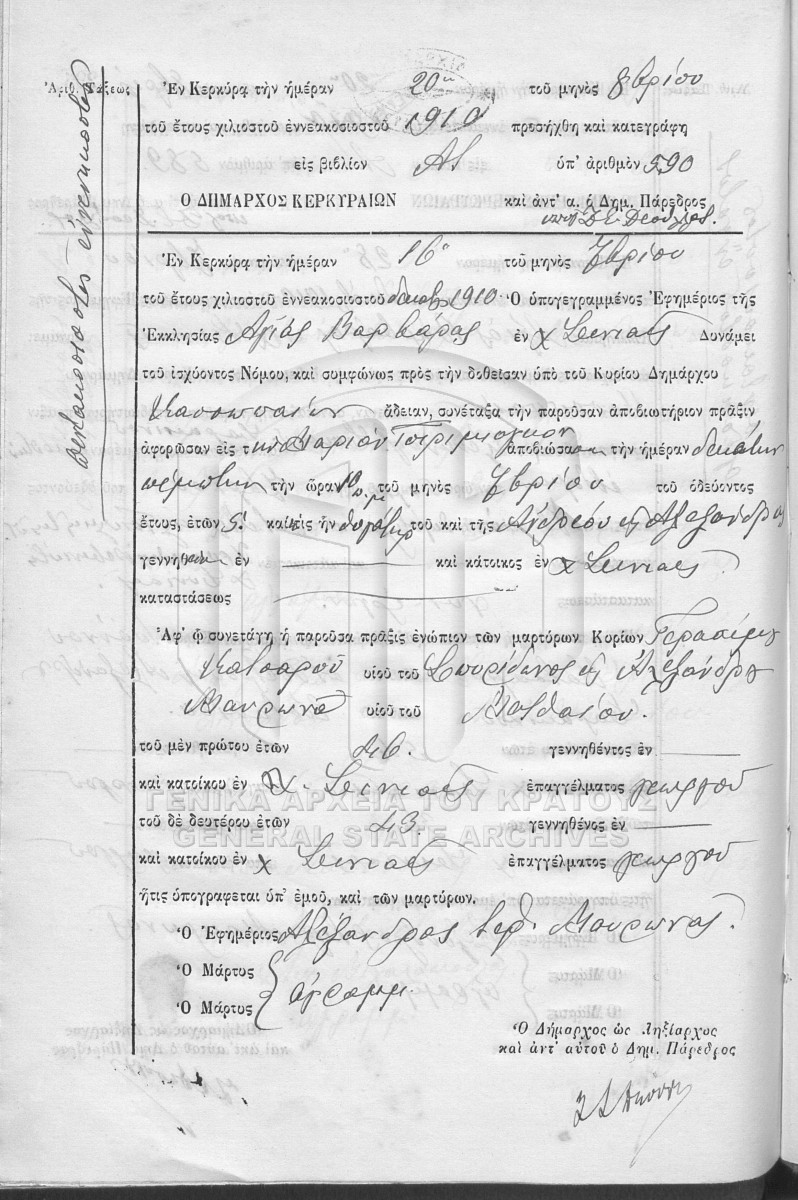 Ἀριθ. Τάξεως
πεντακοσιοστὸς ἐννενηκοστὸς
Ἐν Κερκύρᾳ τὴν ἡμέραν 20ην τοῦ μηνὸς 8βρίου
τοῦ ἔτους χιλιοστοῦ ἐννεακοσιοστοῦ 1910 προσήχθη καὶ κατεγράφη
εἰς βιβλίον Αον ὑπ' ἀριθμὸν 590
Ὁ ΔΗΜΑΡΧΟΣ ΚΕΡΚΥΡΑΙΩΝ καὶ ἀντ' α. ὁ Δημ. Πάρεδρος
Ἐν Κερκύρᾳ τὴν ἡμέραν 16 τοῦ μηνὸς 7βρίου
τοῦ ἔτους χιλιοστοῦ ἐννεακοσιοστοῦ δεκάτου 1910. Ὁ ὑπογεγραμμένος Ἐφημέριος τῆς
Ἐκκλησίας Ἁγίας Βαρβάρας ἐν χ Σινιαῖς Δυνάμει
τοῦ ἰσχύοντος Νόμου, καὶ συμφώνως πρὸς τὴν δοθεῖσαν ὑπὸ τοῦ Κυρίου Δημάρχου
Κασσωπαίων ἄδειαν, συνέταξα τὴν παροῦσαν ἀποβιωτήριον πρᾶξιν
ἀφορῶσαν εἰς τὴν Μαρίαν ἀποβιώσασαν τὴν ἡμέραν δεκάτην
πέμπτην τὴν ὥραν 10 π.μ. τοῦ μηνὸς 7βρίου τοῦ ὁδεύοντος
ἔτους, ἐτῶν 5 καὶ εἰς ἦν θυγάτηρ τοῦ καὶ τῆς Ἀνδρέου κ Ἀλεξάνδρας
γεννηθ ἐν — καὶ κάτοικος ἐν χ Σινιαῖς
καταστάσεως —
Ἀφ' ᾧ συνετάγη ἡ παροῦσα πρᾶξις ἐνώπιον τῶν μαρτύρων Κυρίων Γερασίμου
Κατσαροῦ υἱοῦ τοῦ Σπυρίδωνος κ Ἀλεξάνδρου
Μαυρωνᾶ υἱοῦ τοῦ Ματθαίου.
τοῦ μὲν πρώτου ἐτῶν 46. γεννηθέντος ἐν —
καὶ κατοίκου ἐν χ. Σινιαῖς ἐπαγγέλματος γεωργοῦ
ΓΕΝΙΚΑ ΑΡΧΕΙΑ ΤΟΥ ΚΡΑΤΟΥΣ
τοῦ δὲ δευτέρου ἐτῶν 43 γεννηθένος ἐν —
GENERAL STATE ARCHIVES
καὶ κατοίκου ἐν χ Σινιαῖς ἐπαγγέλματος γεωργοῦ
ἥτις ὑπογραφεται ὑπ' ἐμοῦ, καὶ τῶν μαρτύρων.
Ὁ Ἐφημέριος Ἀλέξανδρος ἱερ. Μαυρωνᾶς.
Ὁ Μάρτυς
ἀγραμμ.
Ὁ Μάρτυς
Ὁ Δήμαρχος ὡς Ληξίαρχος
καὶ ἀντ' αὐτοῦ ὁ Δημ. Πάρεδρος